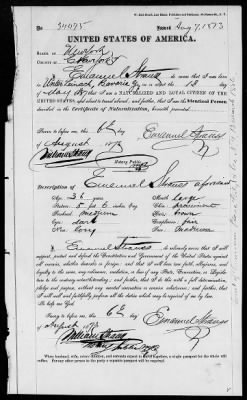 No. 34975
Issued Aug 7, 1873
UNITED STATES OF AMERICA.
STATE OF New York
COUNTY OF New York
I, Emanuel Strauss, do swear that I was born
in Bavaria on or about the 13 day
of May; that I am a NATURALIZED AND LOYAL CITIZEN OF THE
UNITED STATES, and about to travel abroad; and further, that I am the Identical Person
described in the Certificate of Naturalization, herewith presented.
Sworn to before me, this 6th day
of August 1873
Emanuel Strauss
Notary Public
Description of Emanuel Strauss aforesaid
Age: 36 years
Mouth: large
Stature: 5 ft 6 inches, Eng.
Chin: prominent
Forehead: medium
Hair: brown
Eyes: dark
Complexion: fair
Nose: long
Face: medium
I, Emanuel Strauss, do solemnly swear that I will
support, protect and defend the Constitution and Government of the United States against
all enemies, whether domestic or foreign; and that I will bear true faith, allegiance, and
loyalty to the same, any ordinance, resolution, or law of any State, Convention, or Legislature
to the contrary notwithstanding; and further, that I do this with a full determination,
pledge and purpose, without any mental reservation or evasion whatsoever; and further, that
I will well and faithfully perform all the duties which may be required of me by law.
So help me God.
Sworn to before me, this 6th day
of August 1873
Emanuel Strauss
When husband, wife, minor children, and servants expect to travel together, a single passport for the whole will
suffice. For any other person in the party a separate passport will be required.